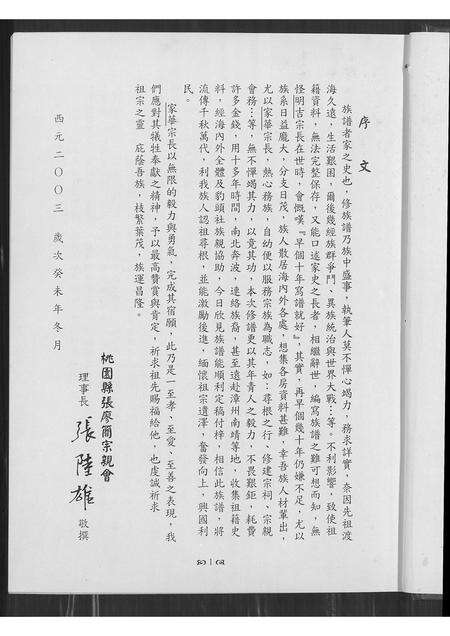 序文
族譜者家之史也，修族譜乃族中盛事，執筆人莫不憚心竭力，務求詳實，奈因先祖渡
海久遠，生活艱困，爾後幾經族群爭鬥、異族統治與世界大戰…等。不利影響，致使祖
籍資料，無法完整保存，又能口述家史之長者，相繼辭世，編寫族譜之難可想而知，無
怪明吉宗長在世時，會慨嘆『早個十年寫譜就好』，其實，再早個幾十年仍嫌不足，尤以
族系日益龐大，分支日茂，族人散居海內外各處，想集各房資料甚難，幸吾族人材輩出，
尤以家華宗長，熱心務族，自幼便以服務宗族為職志，如：尋根之行、修建宗祠、宗親
會務…等，無不憚竭其力，以竟其功，本次修譜更以其年青人之毅力，不畏艱鉅，耗費
許多金錢，用十多年時間，南北奔波，連絡族裔，甚至遠赴漳州南靖等地，收集祖籍史
料，經海內外全體及豹頭社族親協助，今日欣見族譜能順利定稿付梓，相信此族譜，將
流傳千秋萬代，利我族人認祖尋根，並能激勵後進，緬懷祖宗遺澤，奮發向上，興國利
民。
家華宗長以無限的毅力與勇氣，完成其宿願，此乃是一至孝，至愛、至善之表現，我
們應對其犧牲奉獻之精神，予以最高贊賞與肯定，祈求祖先賜福給他，也虔誠祈求
祖宗之靈　庇蔭吾族，枝繁葉茂，族運昌隆。
桃園縣張廖簡宗親會
理事長　張陸雄　敬撰
西元二００三　歲次癸未年冬月